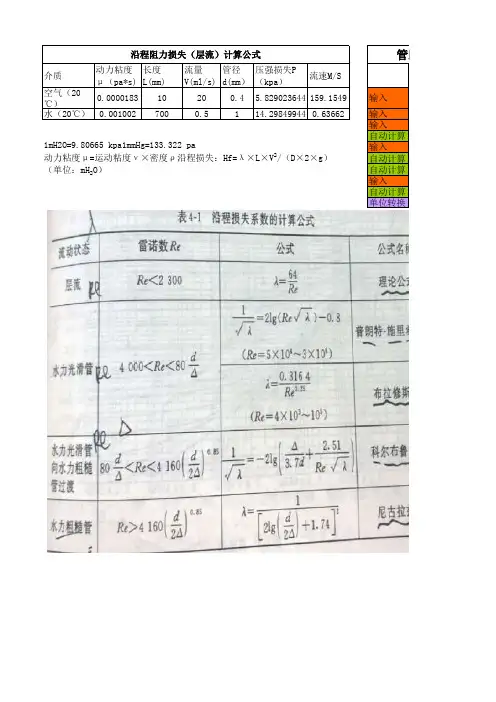 沿程阻力损失（层流）计算公式
管
介质 动力粘度μ（pa*s) 长度L(mm) 流量V(ml/s) 管径d(mm） 压强损失P（kpa） 流速M/S
空气（20℃） 0.0000183 10 20 0.4 5.829023644 159.1549 输入
水（20℃） 0.001002 700 0.5 1 14.29849944 0.63662 输入
输入
自动计算
1mH2O=9.80665 kpa1mmHg=133.322 pa 输入
动力粘度μ=运动粘度ν×密度ρ沿程损失：Hf=λ×L×V²/（D×2×g） 自动计算
（单位：mH₂O） 自动计算
输入
自动计算
单位转换
表4-1 沿程损失系数的计算公式
流动状态 雷诺数Re 公式 公式名称
层流 Re Re<2 300 λ=64/Re 理论公
水力光滑管 Re 4 000<Re<80 d/Δ 1/√λ=2lg(Re√λ)-0.8
(Re=5×10⁴~3×10⁶) 普朗特-施里
λ=0.316 4/Re^0.25
(Re=4×10³~10⁵) 布拉修斯
Δ
水力光滑管向水力粗糙管过渡 Re 80 d/Δ<Re<4 160(d/2Δ)^0.85 1/√λ=-2lg(Δ/3.7d+2.51/Re√λ) 科尔布鲁
水力粗糙管 Re>4 160(d/2Δ)^0.85 λ=1/[2lg(d/2Δ)+1.74]² 尼古拉